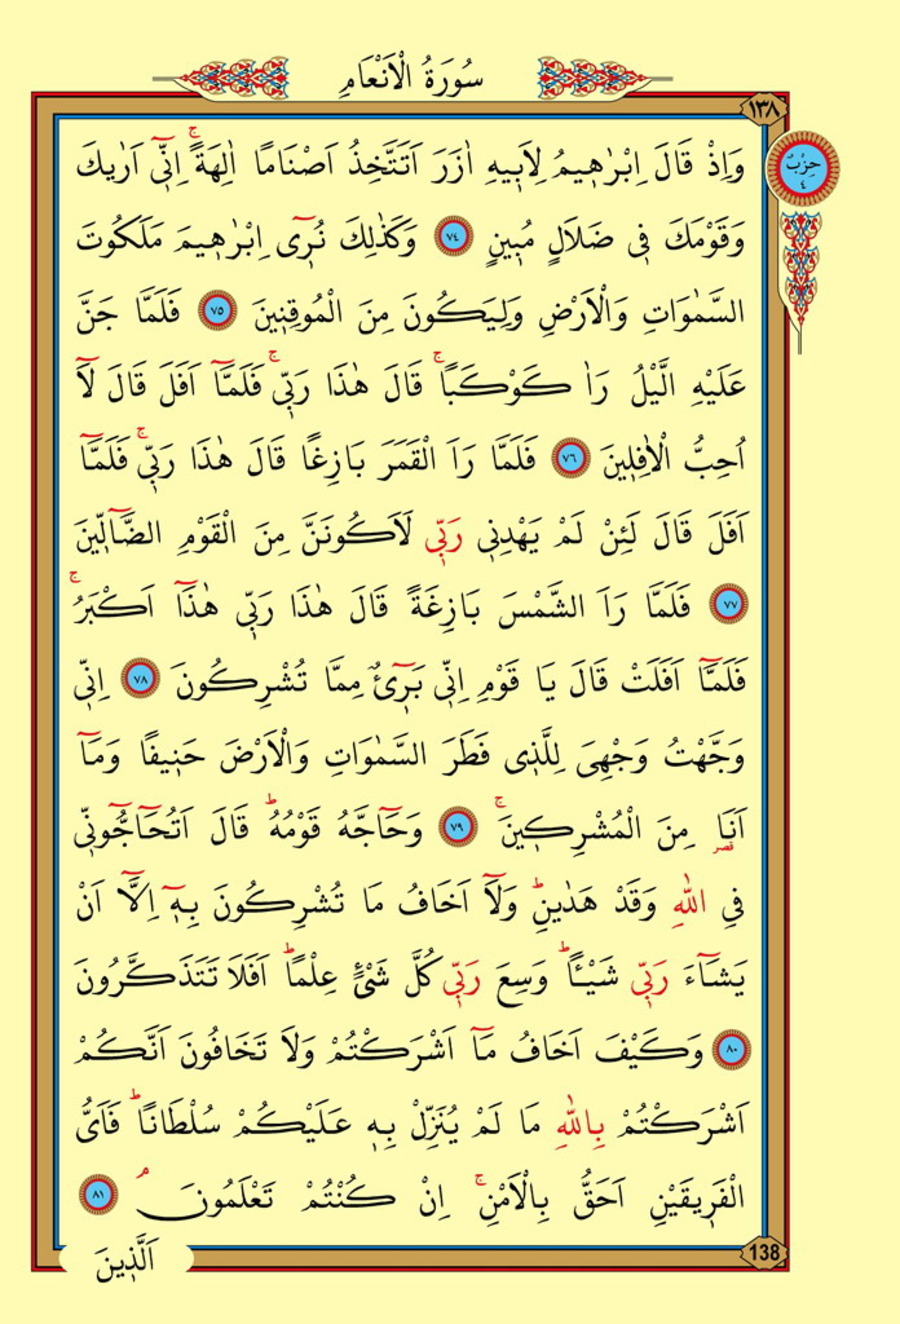 سُورَةُ الْاَنْعَامِ
١٣٨
حِزْبٌ
٤
وَاِذْ قَالَ اِبْرٰهٖيمُ لِاَبٖيهِ اٰزَرَ اَتَتَّخِذُ اَصْنَامًا اٰلِهَةًۚ اِنّٖٓي اَرٰيكَ
وَقَوْمَكَ فٖي ضَلَالٍ مُبٖينٍ ﴿٧٤﴾ وَكَذٰلِكَ نُرٖٓي اِبْرٰهٖيمَ مَلَكُوتَ
السَّمٰوَاتِ وَالْاَرْضِ وَلِيَكُونَ مِنَ الْمُوقِنٖينَ ﴿٧٥﴾ فَلَمَّا جَنَّ
عَلَيْهِ الَّيْلُ رَاٰ كَوْكَبًاۚ قَالَ هٰذَا رَبّٖيۚ فَلَمَّٓا اَفَلَ قَالَ لَٓا
اُحِبُّ الْاٰفِلٖينَ ﴿٧٦﴾ فَلَمَّا رَاَ الْقَمَرَ بَازِغًا قَالَ هٰذَا رَبّٖيۚ فَلَمَّٓا
اَفَلَ قَالَ لَئِنْ لَمْ يَهْدِنٖي رَبّٖي لَاَكُونَنَّ مِنَ الْقَوْمِ الضَّٓالّٖينَ
﴿٧٧﴾ فَلَمَّا رَاَ الشَّمْسَ بَازِغَةً قَالَ هٰذَا رَبّٖي هٰذَٓا اَكْبَرُۚ
فَلَمَّٓا اَفَلَتْ قَالَ يَا قَوْمِ اِنّٖي بَرٖٓيءٌ مِمَّا تُشْرِكُونَ ﴿٧٨﴾ اِنّٖي
وَجَّهْتُ وَجْهِيَ لِلَّذٖي فَطَرَ السَّمٰوَاتِ وَالْاَرْضَ حَنٖيفًا وَمَٓا
اَنَا۬ قصر مِنَ الْمُشْرِكٖينَۚ ﴿٧٩﴾ وَحَٓاجَّهُ قَوْمُهُؕ قَالَ اَتُحَٓاجُّٓونّٖي
فِي اللّٰهِ وَقَدْ هَدٰينِؕ وَلَٓا اَخَافُ مَا تُشْرِكُونَ بِهٖٓ اِلَّٓا اَنْ
يَشَٓاءَ رَبّٖي شَيْـًٔاؕ وَسِعَ رَبّٖي كُلَّ شَيْءٍ عِلْمًاؕ اَفَلَا تَتَذَكَّرُونَ
﴿٨٠﴾ وَكَيْفَ اَخَافُ مَٓا اَشْرَكْتُمْ وَلَا تَخَافُونَ اَنَّكُمْ
اَشْرَكْتُمْ بِاللّٰهِ مَا لَمْ يُنَزِّلْ بِهٖ عَلَيْكُمْ سُلْطَانًاؕ فَاَيُّ
الْفَرٖيقَيْنِ اَحَقُّ بِالْاَمْنِۚ اِنْ كُنْتُمْ تَعْلَمُونَۘ ﴿٨١﴾
138
اَلَّذٖينَ